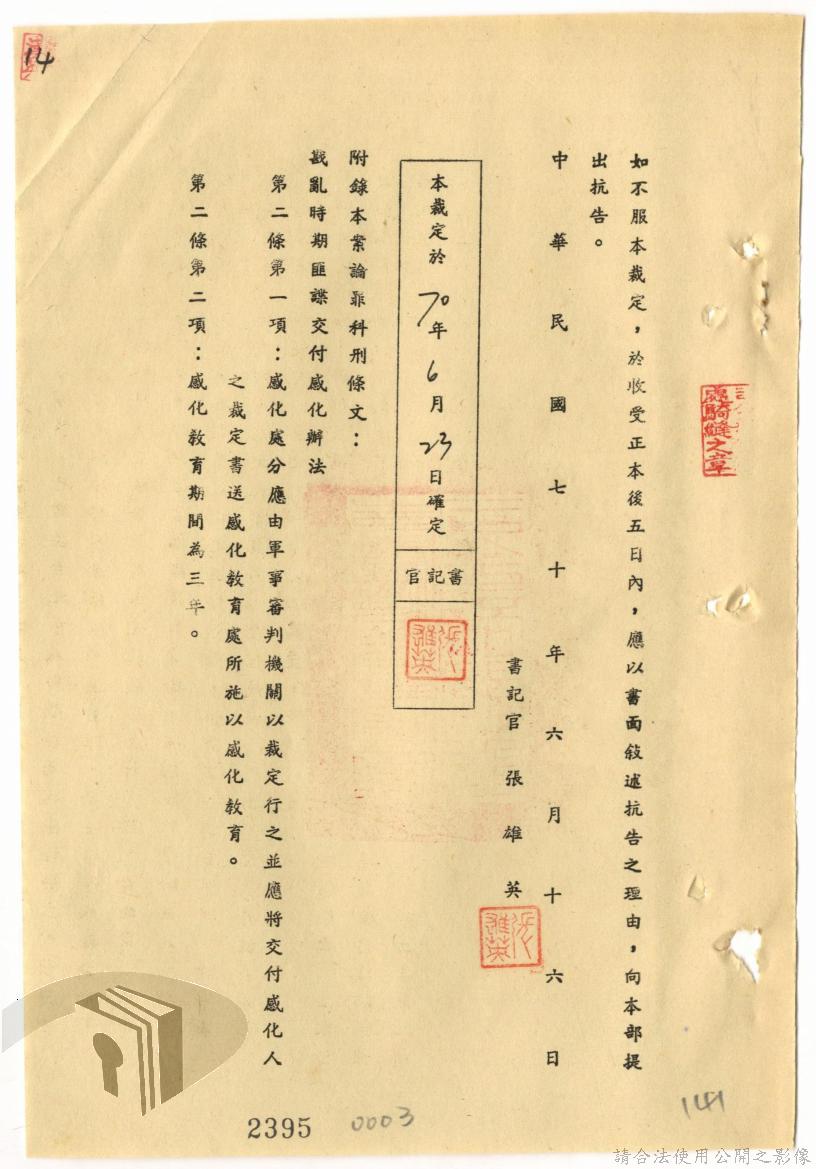 如不服本裁定，於收受正本後五日內，應以書面敍述抗告之理由，向本部提
出抗告。
中華民國七十年六月十六日
書記官 張雄英
本裁定於70年6月23日確定
書記官
附錄本案論罪科刑條文：
戡亂時期匪諜交付感化辦法
第二條第一項：感化處分應由軍事審判機關以裁定行之並應將交付感化人
之裁定書送感化教育處所施以感化教育。
第二條第二項：感化教育期間為三年。
騎縫之章
14
2395
0003
141
請合法使用公開之影像